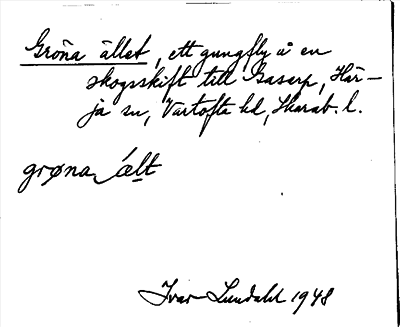 Gröna ället, ett gungfly å en
skogsskift till Gaserp, Här-
ja sn, Vartofta hd, Skarab. l.
grøna ˏælt
Ivar Lundahl 1948